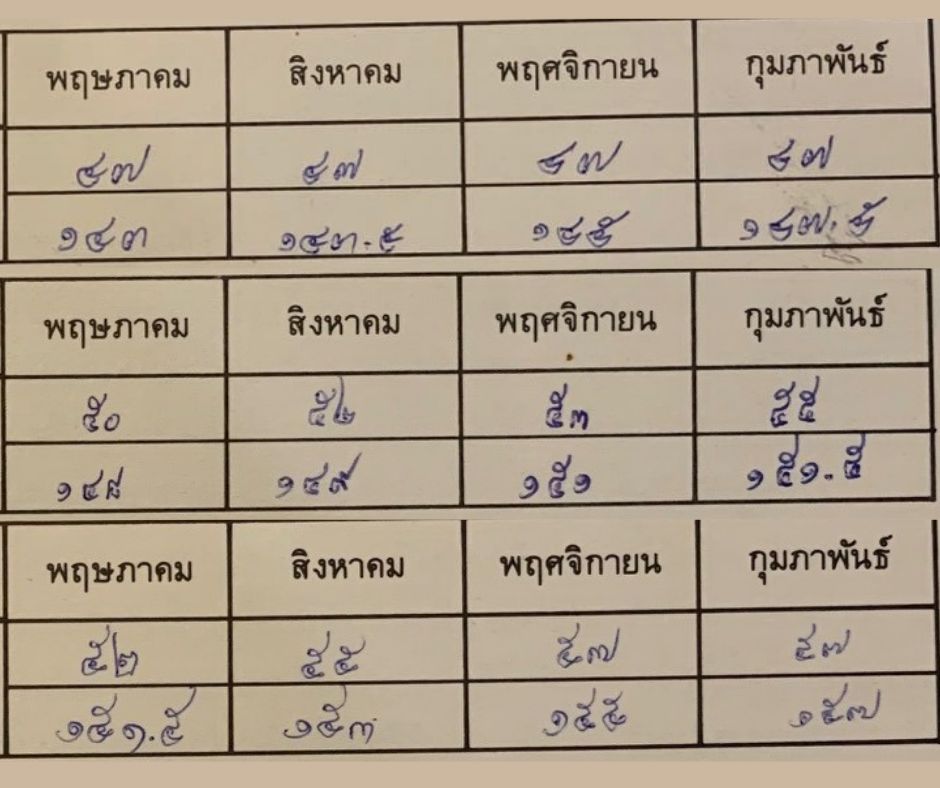 พฤษภาคม สิงหาคม พฤศจิกายน กุมภาพันธ์
๔๗ ๔๗ ๔๗ ๔๗
๑๔๓ ๑๔๓.๕ ๑๔๕ ๑๔๗.๕
พฤษภาคม สิงหาคม พฤศจิกายน กุมภาพันธ์
๕๐ ๕๒ ๕๓ ๕๕
๑๔๘ ๑๔๙ ๑๕๑ ๑๕๑.๕
พฤษภาคม สิงหาคม พฤศจิกายน กุมภาพันธ์
๕๒ ๕๕ ๕๗ ๕๗
๑๕๑.๕ ๑๕๓ ๑๕๕ ๑๕๗